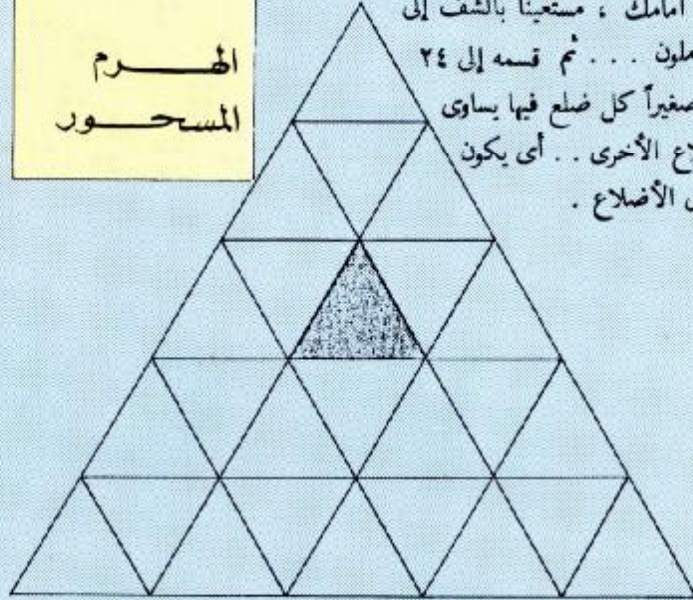 الهرم
المسحور
أمامك ، مستعينا بالشف إلى
ملون . . . ثم قسمه إلى ٢٤
صغيراً كل ضلع فيها يساوى
لاع الأخرى . . أى يكون
الأضلاع .